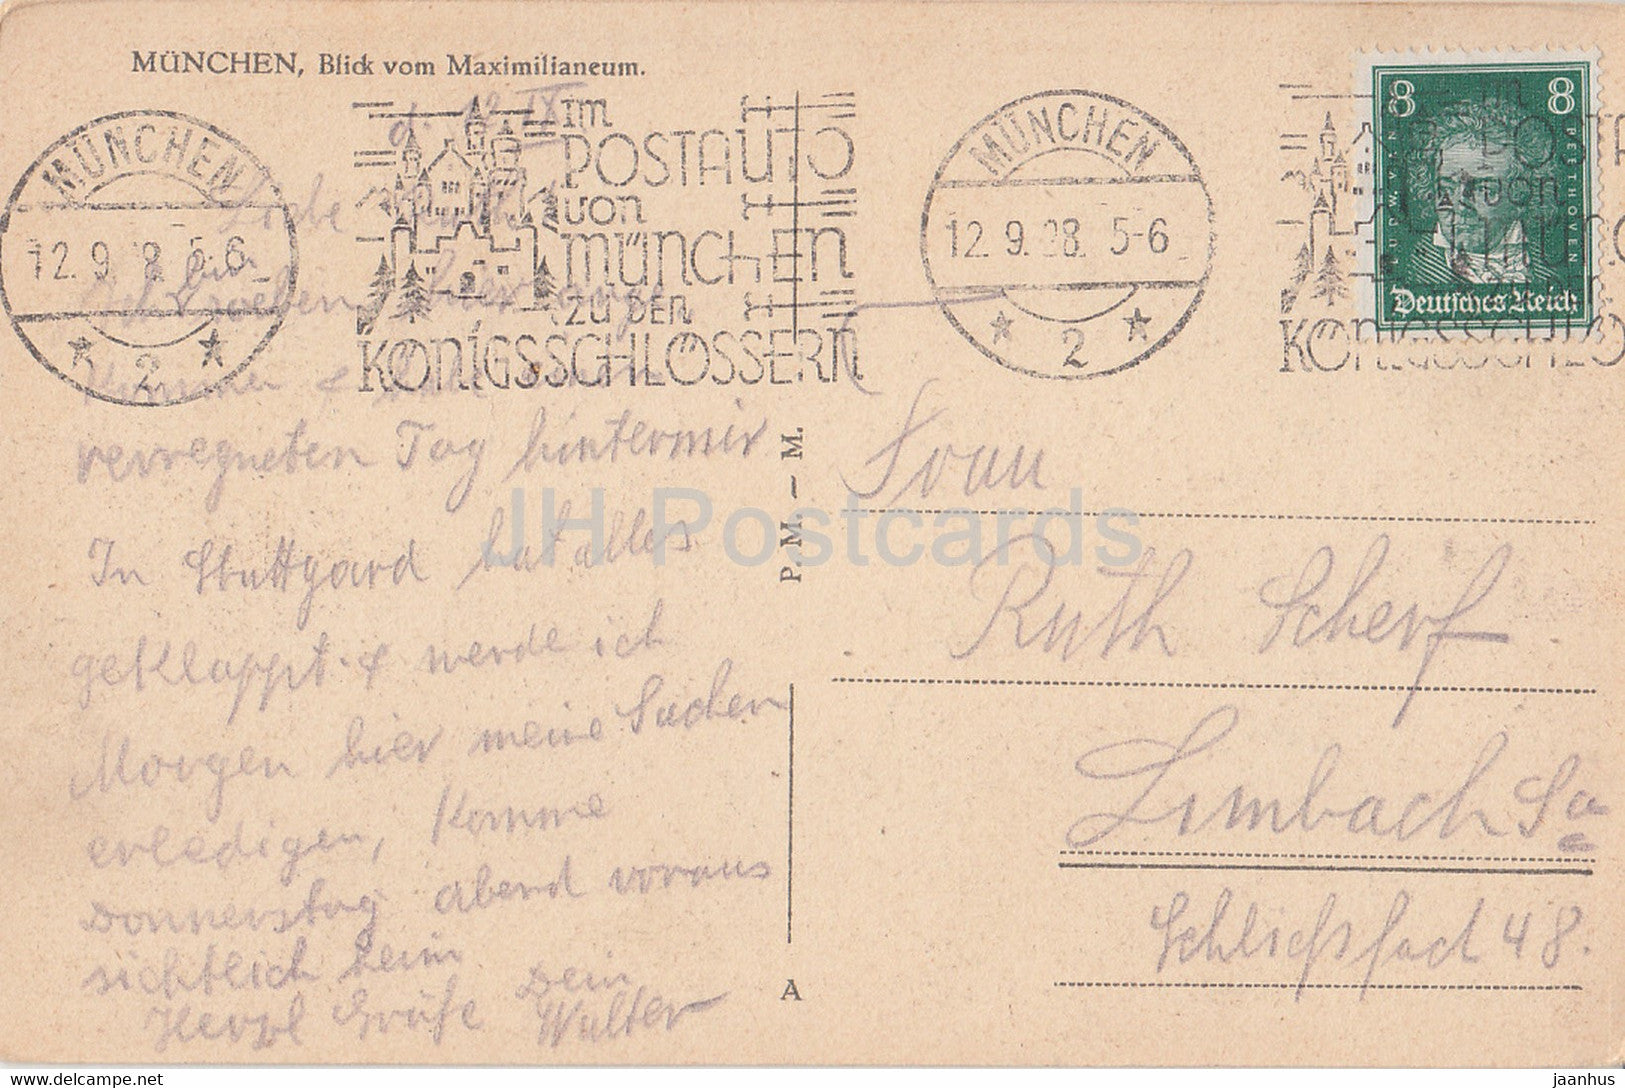 MÜNCHEN, Blick vom Maximilianeum.
MÜNCHEN
12.9. 5-6
* 2 *
IM
POSTAUTO
VON
MÜNCHEN
ZU DEN
KÖNIGSSCHLÖSSERN
MÜNCHEN
12.9.28. 5-6
* 2 *
8 8
LUDW. VAN
BEETHOVEN
Deutsches Reich
POSTA
von
KÖNIGSSCHLÖ
d. 12 IX
Liebe Ruth
bin soeben hier
verregneten Tag hintermir
In Stuttgard hat alles
geklappt & werde ich
Morgen hier meine Sachen
erledigen, Komme
Donnerstag abend voraus
sichtlich heim
Herzl Grüße Dein
Walter
P. M – M.
A
Frau
Ruth Scherf
Limbach Sa
Schließfach 48.
JH Postcards
jaanhus www.delcampe.net